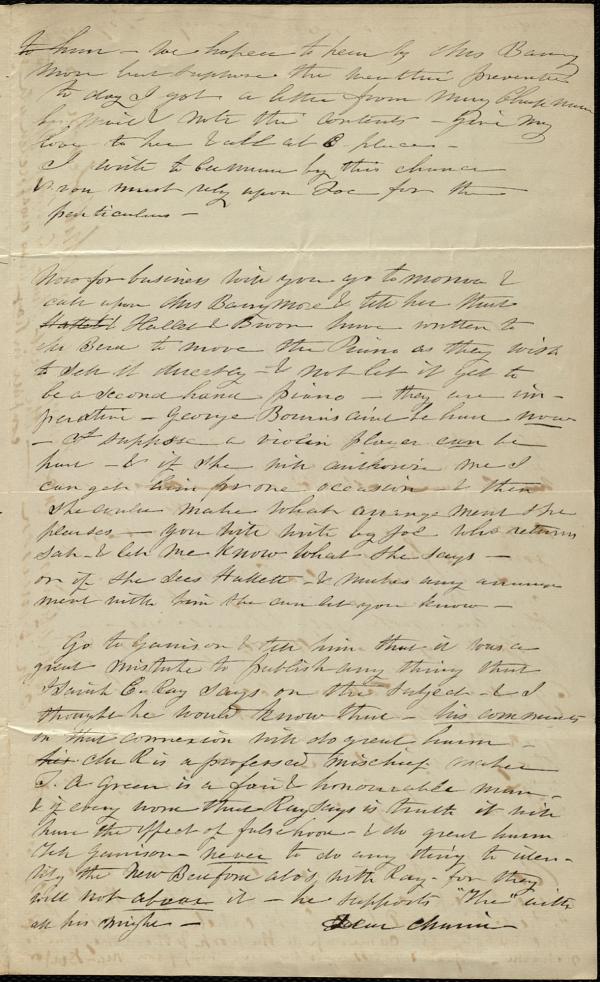 to him - We hoped to hear by Mrs Barry
More but suppose the weather prevented
to day I got a letter from Mary Chapman
by mail & note the contents - Give my
love to her & all at C place -
I write to by this chance
& you must rely upon Joe for the
particulars -
Now for business will you go tomorrow &
call upon Mrs Barrymore & tell her that
Hallet & Brown have written to
Mr Bera to move the Piano as they wish
to sell it directly - & not let it get to
be a second hand piano - they are im-
perative - George Bourn's aint be had now
- I suppose a violin player can be
had - & if she will authorise me I
can get him for one occasion - & then
she can make what arrangement she
pleases - you will write by Joe who returns
Sat - & let me know what she says -
or if she sees Hallett - & makes any arrange
ment with him she can let you know -
Go to Garrison & tell him that it was a
great mistake to publish any thing that
Isaiah C. Ray says on the subject - & I
thought he would know that - his comments
in that connexion will do great harm -
his Mr R is a professed mischief maker
J. A Green is a fair & honourable man -
& if every word that Ray says is truth it will
have the effect of falsehood - & do great harm
Tell Garrison - never to do any thing to iden-
tify the New Bedford abo's with Ray - for they
will not allow it - he supports "the" with
all his might - Dear